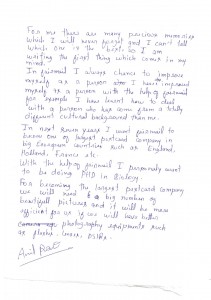 For me there are many precious memories
which I will never forget and I can't tell
which one is the best so I am
writing the first thing which comes in my
mind.
In favimail I always chance to improve
myself as a person I have improved
myself as a person with the help of favimail
for example I have learnt how to deal
with a person who has come from a totally
different cultural background than me.
In next seven years I want favimail to
become one of largest postcard company in
big European countries such as England,
Holland, France etc
With the help of favimail I personally want
to be doing PHD in Biology.
For becoming the largest postcard company
we will need a big number of
beautiful pictures and it will be more
efficient for us if we will have better
photography equipments such
as flashs, lenses, DSLRs.